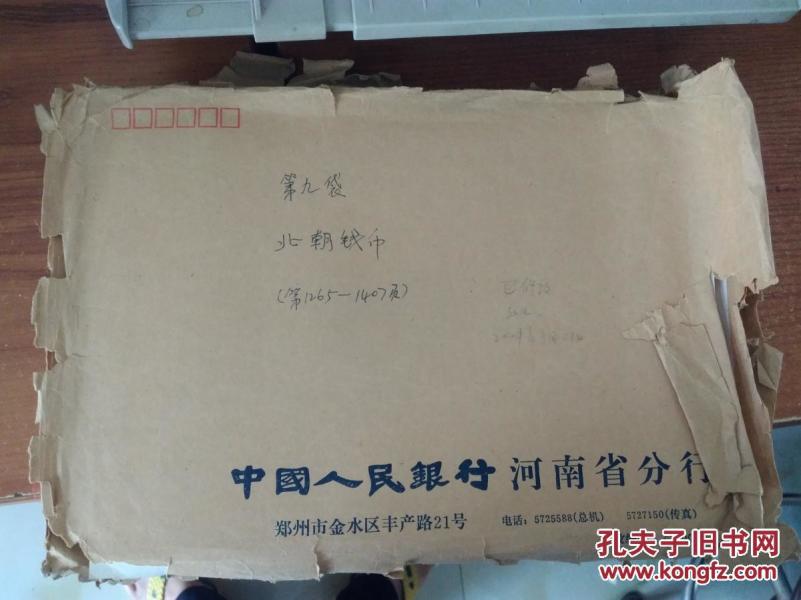 第九袋
北朝钱币
(第1265—1407页)
已修改
中國人民銀行 河南省分行
郑州市金水区丰产路21号 电话：5725588(总机) 5727150(传真)
孔夫子旧书网
www.kongfz.com